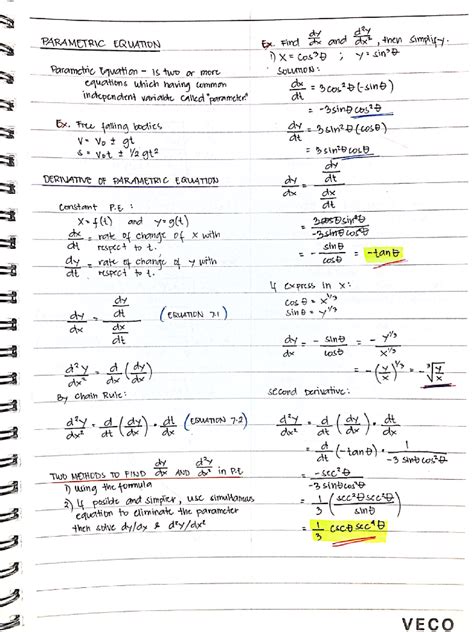 PARAMETRIC EQUATION
Parametric Equation - is two or more
equations which having common
independent variable called "parameter"
Ex. Free falling bodies
V = V₀ ± gt
s = V₀t ± 1/2 gt²
DERIVATIVE OF PARAMETRIC EQUATION
Constant P.E :
X = f(t) and y = g(t)
dx/dt = rate of change of X with
respect to t.
dy/dt = rate of change of y with
respect to t.
dy/dx = (dy/dt)/(dx/dt) (EQUATION 7.1)
d²y/dx² = d/dx (dy/dx)
By Chain Rule:
d²y/dx² = d/dt (dy/dx) · dt/dx (EQUATION 7.2)
TWO METHODS TO FIND dy/dx AND d²y/dx² in P.E
1) Using the formula
2) If posible and simplier, use simultaneous
equation to eliminate the parameter
then solve dy/dx & d²y/dx²
Ex. Find dy/dx and d²y/dx², then simplify.
1) X = cos³θ ; y = sin³θ
SOLUTION:
dx/dt = 3cos²θ (-sinθ)
= -3sinθcos²θ
dy/dt = 3sin²θ (cosθ)
= 3sin²θcosθ
dy/dx = (dy/dt)/(dx/dt)
= 3cosθsin²θ/-3sinθcos²θ
= - sinθ/cosθ = -tanθ
If express in X:
cosθ = X^1/3
sinθ = y^1/3
dy/dx = - sinθ/cosθ = - y^1/3/X^1/3
= -(y/x)^1/3 = -³√(y/x)
Second Derivative:
d²y/dx² = d/dt (dy/dx) · dt/dx
= d/dt (-tanθ) · 1/-3 sinθcos²θ
= -sec²θ/-3sinθcos²θ
= 1/3 (sec²θsec²θ/sinθ)
= 1/3 cscθsec⁴θ
VECO